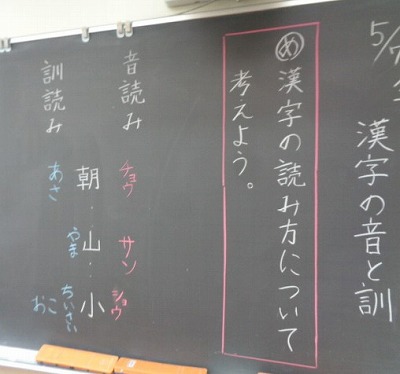 5/7
漢字の音と訓
め 漢字の読み方について
考えよう。
音読み チョウ サン ショウ
朝‥山‥小
訓読み あさ やま ちいさい
こ
お